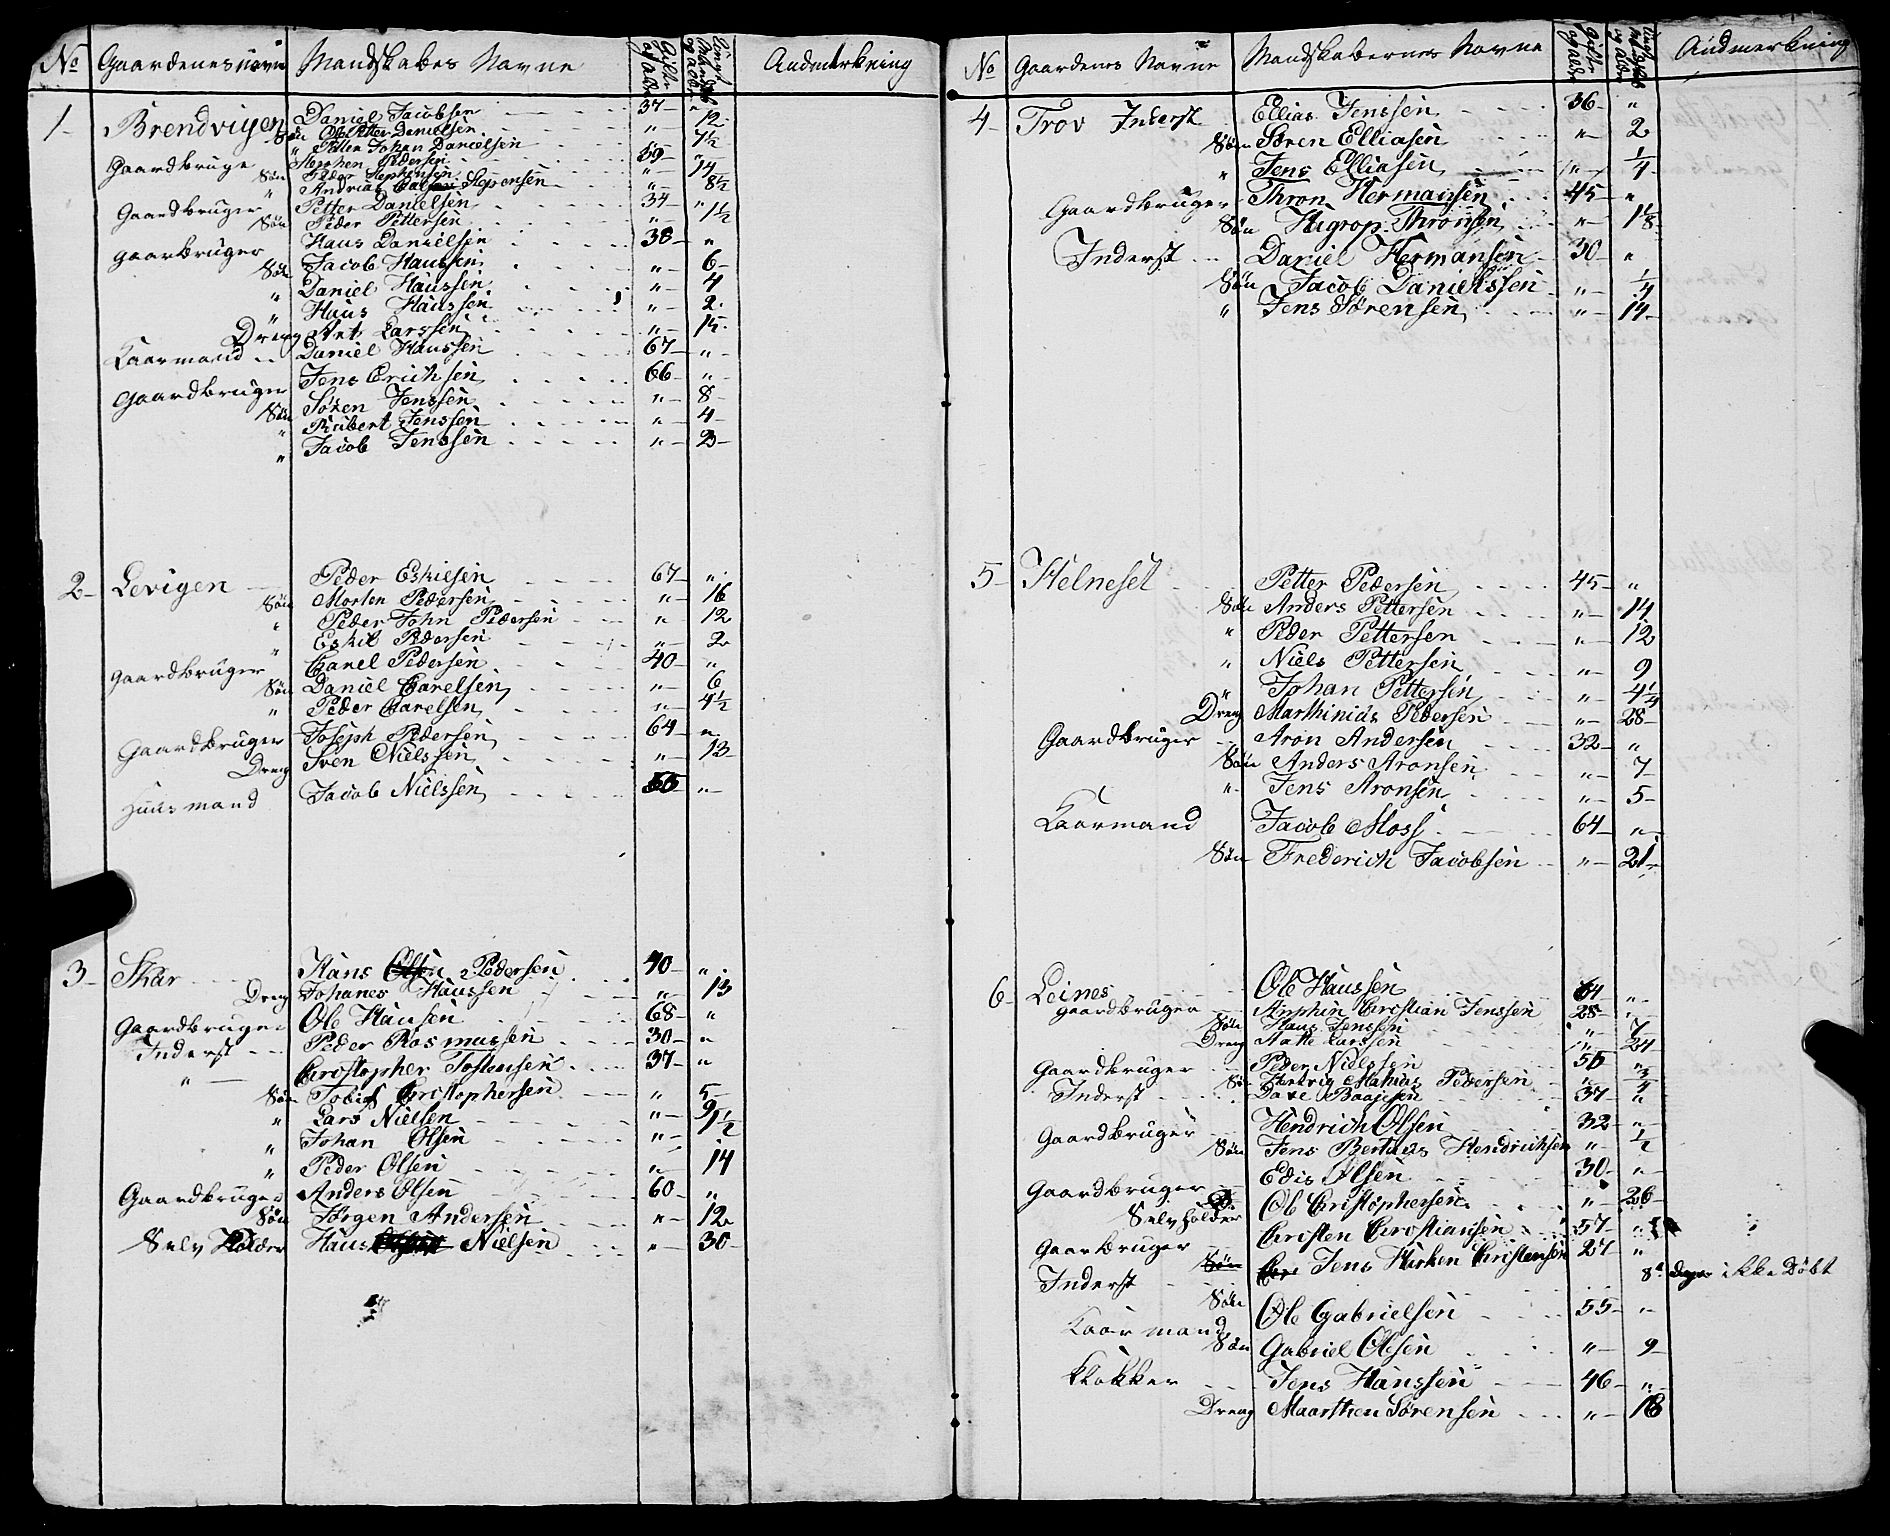 No Gaardenes navn Mandskabes Navne Gifte og Alder Andmerkning
1- Brendvigen Daniel Jacobsen 37- "
Søn Ole Petter Danielsen "- 12-
" Petter Johan Danielsen 7½
Gaardbruge Stephen Pedersen 59- "
Søn Peder Stephensen "- 14
" Andrias Stepensen "- 8½
Gaardbruger Petter Danielsen 34- "
Søn Peder Pettersen "- 1½
gaarbruger Hans Danielsen 38- "
Søn Jacob Hanssen "- 6-
" Daniel Hanssen "- 4
" Hans Hanssen "- 2-
Dreng Larssen "- 15-
Kaarmand Daniel Hanssen 67- "-
Gaardbruger Jens Erichsen 66- "-
Søn Sören Jenssen "- 8-
" Rubert Jenssen "- 4-
" Jacob Jenssen "- 2-
2- Levigen Peder Eskilsen 67- "-
Søn Morten Pedersen "- 16
" Peder John Pedersen "- 12
" Eskil Pedersen "- 2
gaardbruger Carel Pedersen 40- "
Søn Daniel Carelsen "- 6
" Peder Carelsen "- 4½
Gaardbruger Joseph Pedersen 64- "-
Dreng Sven Nielssen "- 13-
Huusmand Jacob Nielssen "-
3- Skar Hans Olsen Pedersen 40- "
Dreng Johanes Hanssen "- 13
Gaardbruger Ole Hansen 68- "
Inderst Peder Rasmussen 30- "
"- Christopher Tostensen 37- "
Søn Tobias Christophersen " 5-
" Lars Nielsen "- 9½
" Johan Olsen "-
" Peder Olsen "- 14
Gaardbruger Anders Olsen 60- "
Søn Jörgen Andersen "- 12
Selv Holder Hans Nielsen "- 30-
No Gaardenes Navne Mandskabernes Navne Gifte og Alder Andmerkning
4- Trov Inderst Ellias Jenssen 36- "
Søn Sören Elliasen "- 2
" Jens Elliasen "- ¼
Gaardbruger Thron Hermansen 45- "
Søn Thronsen "-
Inderst Daniel Hermansen 30- "
Søn Jacob Danielssen "- ¼
" Jens Sörensen "- 14-
5- Helneset Petter Pedersen 45- "
Søn Anders Pettersen "- 14
" Peder Pettersen "- 12
" Niels Pettersen "- 9
" Johan Pettersen "- 4¼
Dreng Marthinias Pedersen "- 28-
Gaardbruger Aron Andersen 32- "
Søn Anders Aronsen "- 7-
"- Jens Aronsen "- 5-
Kaarmand Jacob Moss 64- "-
Søn Frederich Jacobsen "- 21-
6- Leines Ole Hanssen 64 "-
gaardbruger Christian Jenssen 28- "-
Søn Hans Jenssen "- 7-
Dreng Larssen "- 24
Gaardbruger Peder Nielssen "
Søn Hartvig Mathias Pedersen "- ¾
Inderst Baagesen 37- "
Gaardbruger Hendrich Olsen 32- "-
Søn Jens Bertheus Hendrichsen "- ½
Gaardbruger Edis Olsen 30- "-
Selvholder Ole Christophersen "- 26-
Gaarbruger Christen Christiansen 57- "
Inderst Søn Jens Christensen 27- "
Søn 8 dager ikke Döbt
Kaarmand Ole Gabrielsen 55- "-
Søn Gabriel Olsen "- 9-
Klokker Jens Hanssen 46- "-
Dreng Maarthen Sörensen "- 18